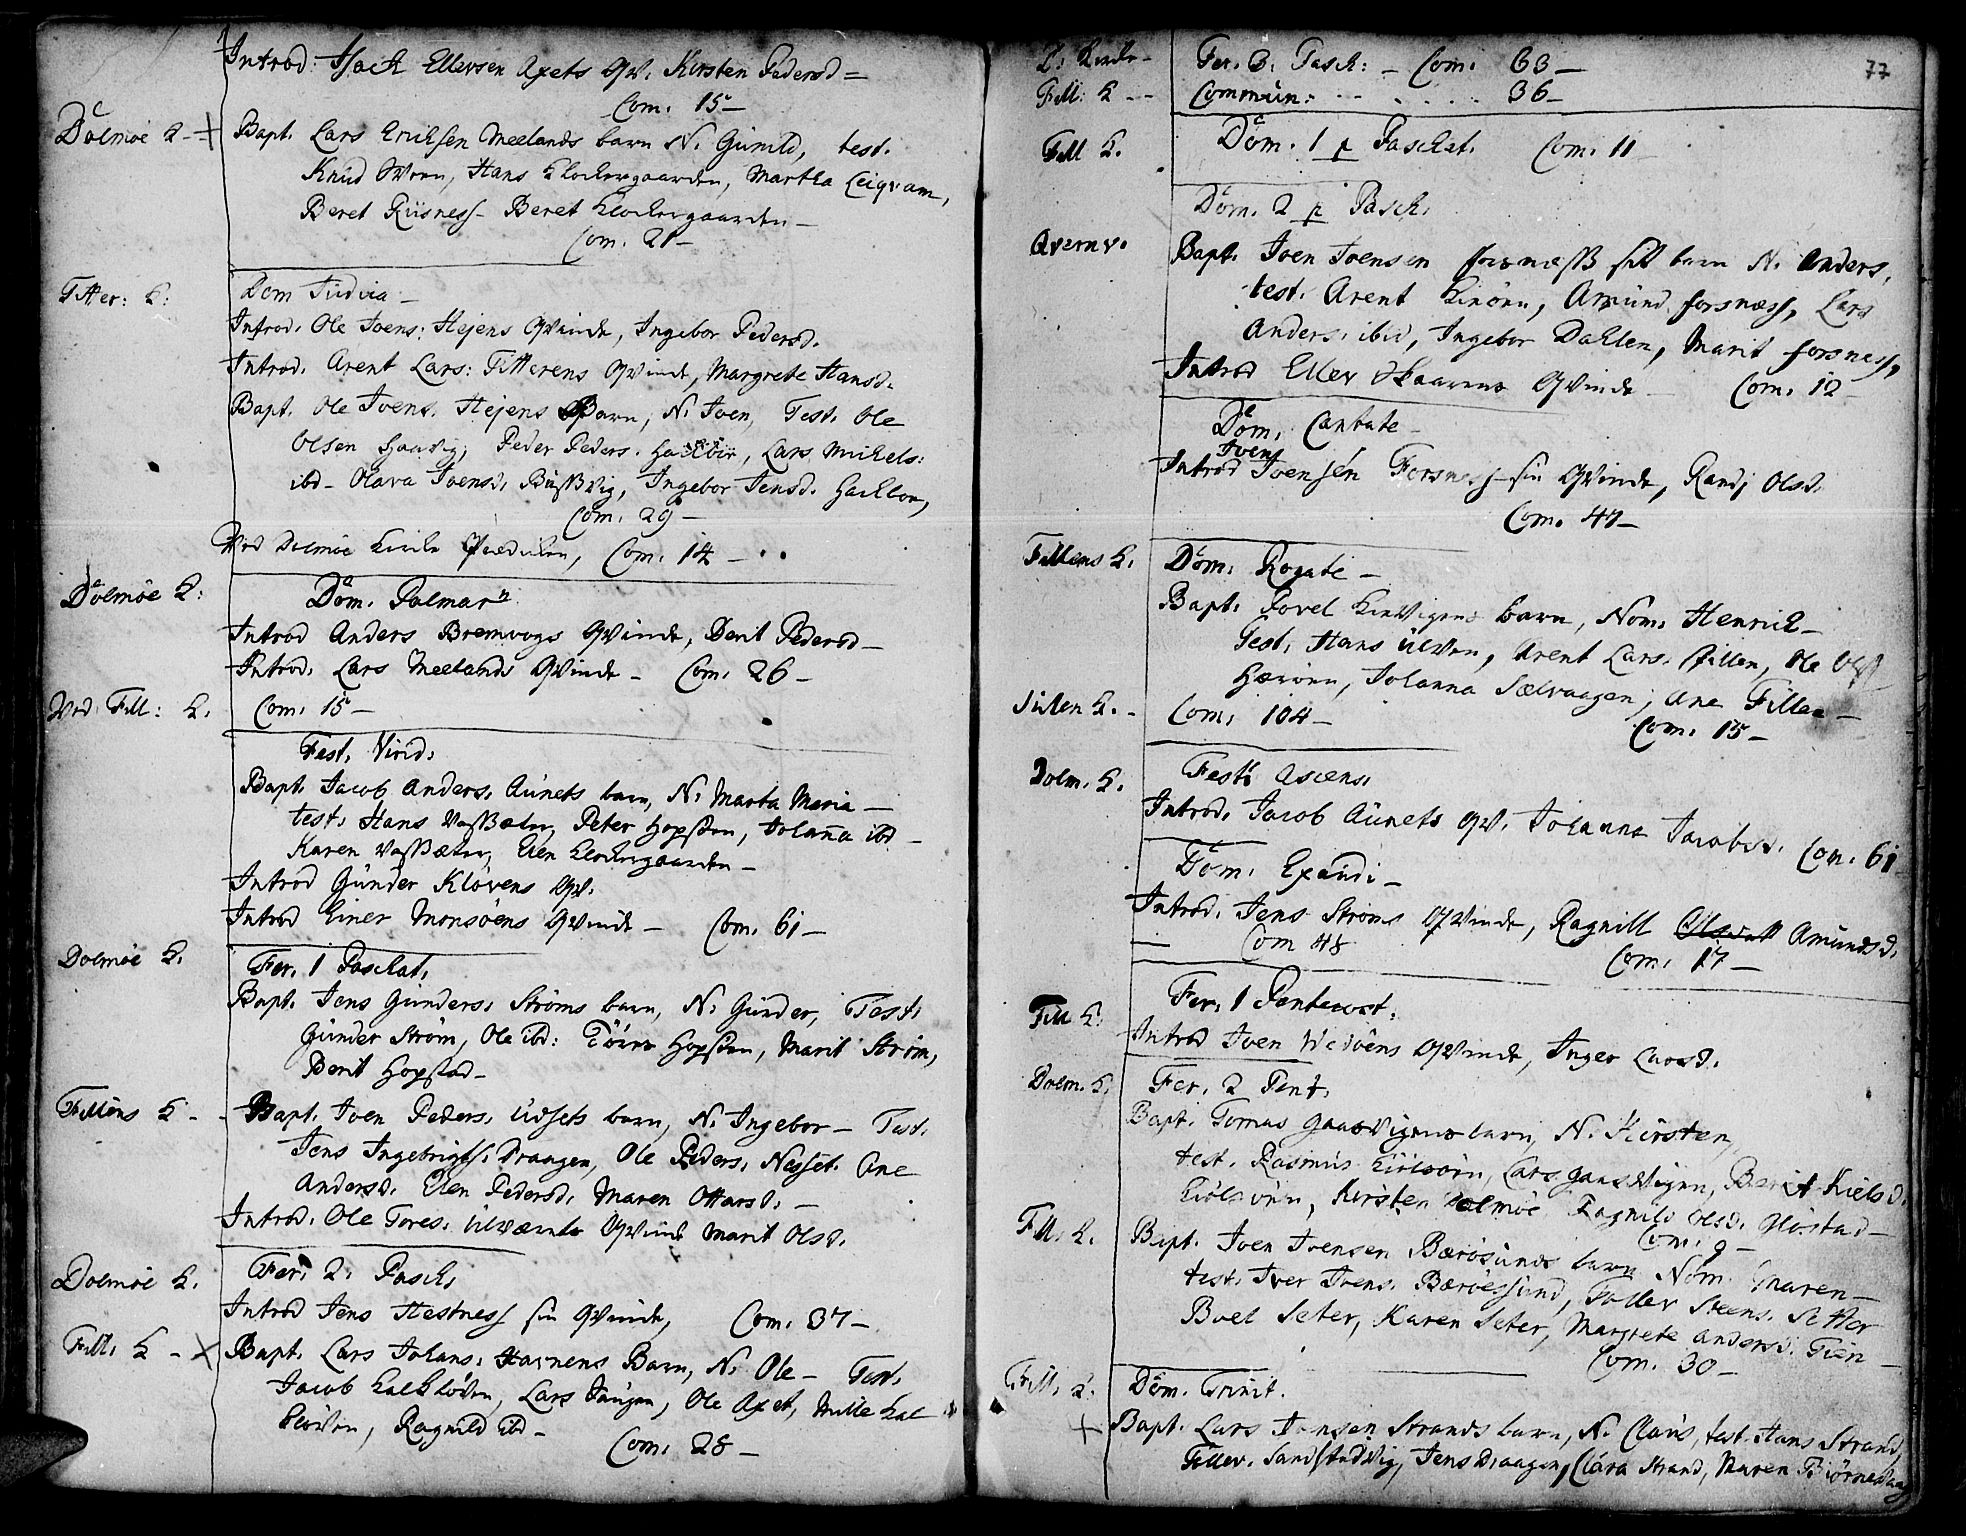 Introd. Isach Ellevsen Axets Qv. Kirsten Pedersd =
Com. 15 -
Dolmöe K - + Bapt. Lars Erichsen Meelands barn N. Gunild, test.
Knud Ween, Hans Klockergaarden, Martha Leiqvam,
Beret Riisness - Beret Klockergaarden -
Com. 21 -
Titter: K: Dom Judica -
Introd. Ole Joens: Hejens Qvinde, Ingebor Pedersd.
Introd. Arent Lars: Titterens Qvinde, Margrete Hansd.
Bapt. Ole Joens. Hejens Barn, N. Joen, Test. Ole
Olsen Haavig, Peder Peders. Lars Michels:
ibd - Olava Joensd. Ingebor Jensd.
Com. 29 -
Ved Dolmöe Kirche Prædichen, Com. 14 -
Dolmöe K: Dom. Palmar
Introd Anders Bremvogs Qvinde, Berit Pedersd -
Introd. Lars Meelands Qvinde - Com. 26 -
Ved Fill: K. Com. 15 -
Fest. Virid.
Bapt. Jacob Anders. Aünets barn, N. Marta Maria -
test. Hans Peter Hopsten, Johanna ibd -
Karen Elen Klockergaarden -
Introd Günder Klövens Qv.
Introd Einer Monsöens Qvinde - Com. 61 -
Dolmöe K. Fer. 1 Paschat.
Bapt. Jens Günders. Ströms barn, N. Günder, Test.
Günder Ström, Ole ibd: Hopsten, Marit Ström,
Berit Hopstad -
Fillens K - Bapt. Joen Peders. Udsets barn, N. Ingebor - Test.
Jens Ingebrigts. Draagen, Ole Peders. Nesset. Ane
Andersd. Elen Pedersd. Maren Ottarsd. -
Introd. Ole Tores. Ulværnts Qvinde Marit Olsd.
Dolmöe K. Fer. 2. Pasch.
Introd Jens Hestness sin Qvinde, Com. 37 -
Fill. K - X Bapt. Lars Johans. Havnens Barn, N. Ole - Test.
Jacob Kalklöven, Lars Ole Axet, Mille Kal
klöven, Ragnild ibd -
Com. 28 -
77
D. Kirche - Fer. 3. Pasch: - Com. 63 -
Fill: K - - Commün: - - . . . . . 36 -
Fill K. Dom. 1 p Paschat. Com. 11
Dom. 2 p Pasch.
Qvernv. Bapt. Joen Joensen forsness sit barn N. Anders,
test. Arent Amünd forsness, Lars
Anders. ibid, Ingebor Dahlen, Marit forsness,
Introd Ellev Skaarens Qvinde - Com. 12 -
Dom. Cantate -
Joen
Introd Joensen Forsness sin Qvinde, Randi Olsd.
Com. 47 -
Fillens K. Dom. Rogate -
Bapt. Povel barn, Nom. Henrich -
Test. Hans Ulven, Arent Lars. Fillen, Ole Ols
Johanna Sælvaagen, Ane Fillen -
K. - Com. 104 - Com. 15 -
Dolm. K. Festi Ascens.
Introd. Jacob Aünets Qv. Johanna Jacobsd. Com. 61
Dom. Exaudi -
Introd. Jens Ströms Qvinde, Ragnill Amündsd.
Com 48 Com. 17 -
Fill K. Fer. 1 Pentecost.
Introd Joen Wedöens Qvinde, Inger Larsd.
Dolm. K. Fer. 2 Pent.
Bapt. Tomas Gaasvigens barn, N. Kirsten,
test. Rasmus Lars Gaasvigen, Berit Kielsd.
Kirsten Dolmöe Ragnild Olsd. Hostad -
Com. 9 -
Fill. K. Bapt. Joen Joensen Barösunds barn Nom. Maren -
test. Iver Joens. Baröessund, Toller Steens. Setter
Boel Seter, Karen Seter, Margrete Andersd.
Com. 30 -
Fill. K. Dom. Trinit.
+ Bapt. Lars Jonsen Strands barn, N. Claüs, test. Hans Strand,
Tollev. Sandstadvig, Jens Draagen, Clara Strand, Maren